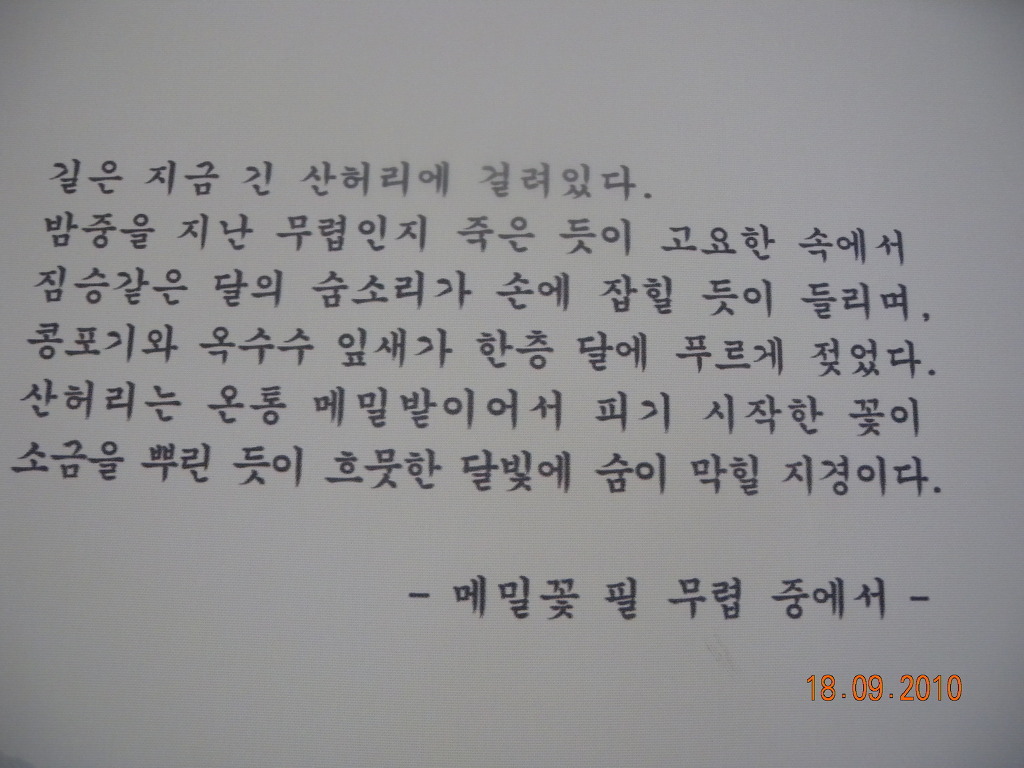 길은 지금 긴 산허리에 걸려있다.
밤중을 지난 무렵인지 죽은 듯이 고요한 속에서
짐승같은 달의 숨소리가 손에 잡힐 듯이 들리며,
콩포기와 옥수수 잎새가 한층 달에 푸르게 젖었다.
산허리는 온통 메밀밭이어서 피기 시작한 꽃이
소금을 뿌린 듯이 흐뭇한 달빛에 숨이 막힐 지경이다.
- 메밀꽃 필 무렵 중에서 -
18.09.2010